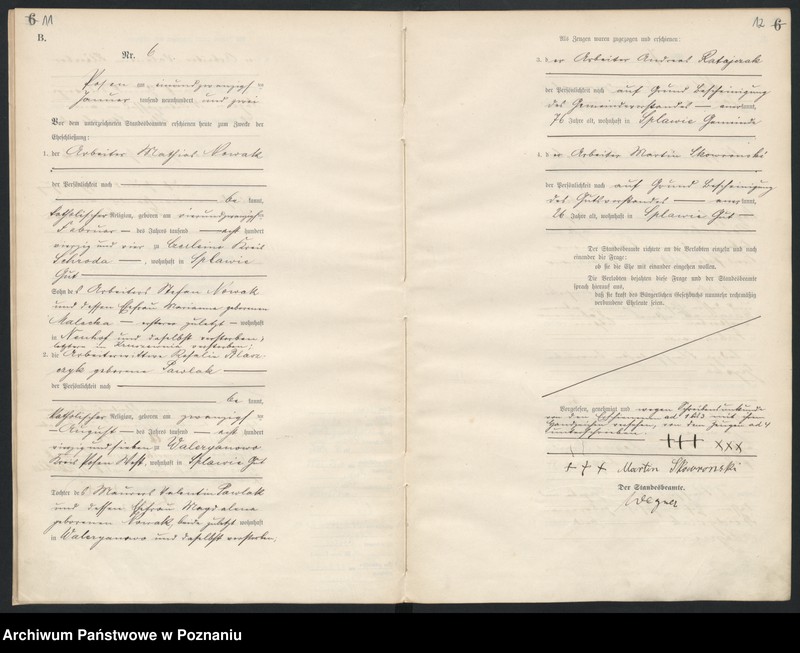 6 11
B.
Nr. 6
Posen am einundzwanzigsten
Januar tausend neunhundert und zwei
Vor dem unterzeichneten Standesbeamten erschienen heute zum Zwecke der
Eheschließung:
1. der Arbeiter Mathias Nowak
der Persönlichkeit nach
be kannt,
katholischer Religion, geboren am vierundzwanzigsten
Februar des Jahres tausend acht hundert
vierzig und vier zu Kreis
Schroda, wohnhaft in Splawie
Gut
Sohn des Arbeiters Stefan Nowak
und dessen Ehefrau Marianna geborenen
Malecka ersterer zuletzt wohnhaft
in Neuhof und daselbst verstorben,
letztere in verstorben;
2. die Arbeiterwittwe Rosalie Blasz-
czyk geborene Pawlak
der Persönlichkeit nach
be kannt,
katholischer Religion, geboren am zwanzigsten
August des Jahres tausend acht hundert
vierzig und sieben zu Waleryanowo
Kreis Posen West, wohnhaft in Splawie Gut
Tochter des Maurers Valentin Pawlak
und dessen Ehefrau Magdalena
geborenen Nowak, beide zuletzt wohnhaft
in Waleryanowo und daselbst verstorben.
12 6
Als Zeugen waren zugezogen und erschienen:
3. der Arbeiter Andreas Ratajczak
der Persönlichkeit nach auf Grund Bescheinigung
des Gemeindevorstandes anerkannt,
76 Jahre alt, wohnhaft in Splawie Gemeinde
4. der Arbeiter Martin Skowronski
der Persönlichkeit nach auf Grund Bescheinigung
des Gutsvorstandes anerkannt,
26 Jahre alt, wohnhaft in Splawie Gut
Der Standesbeamte richtete an die Verlobten einzeln und nach
einander die Frage:
ob sie die Ehe mit einander eingehen wollen.
Die Verlobten bejahten diese Frage und der Standesbeamte
sprach hierauf aus,
daß sie kraft des Bürgerlichen Gesetzbuchs nunmehr rechtmäßig
verbundene Eheleute seien.
Vorgelesen, genehmigt und wegen Schreibensunkunde
von den Erschienenen ad 1 bis 3 mit ihren
Handzeichen versehen, von dem Zeugen ad 4
unterschrieben
+++ xxx
+++ Martin Skowronski
Der Standesbeamte.
Wegner
Archiwum Państwowe w Poznaniu